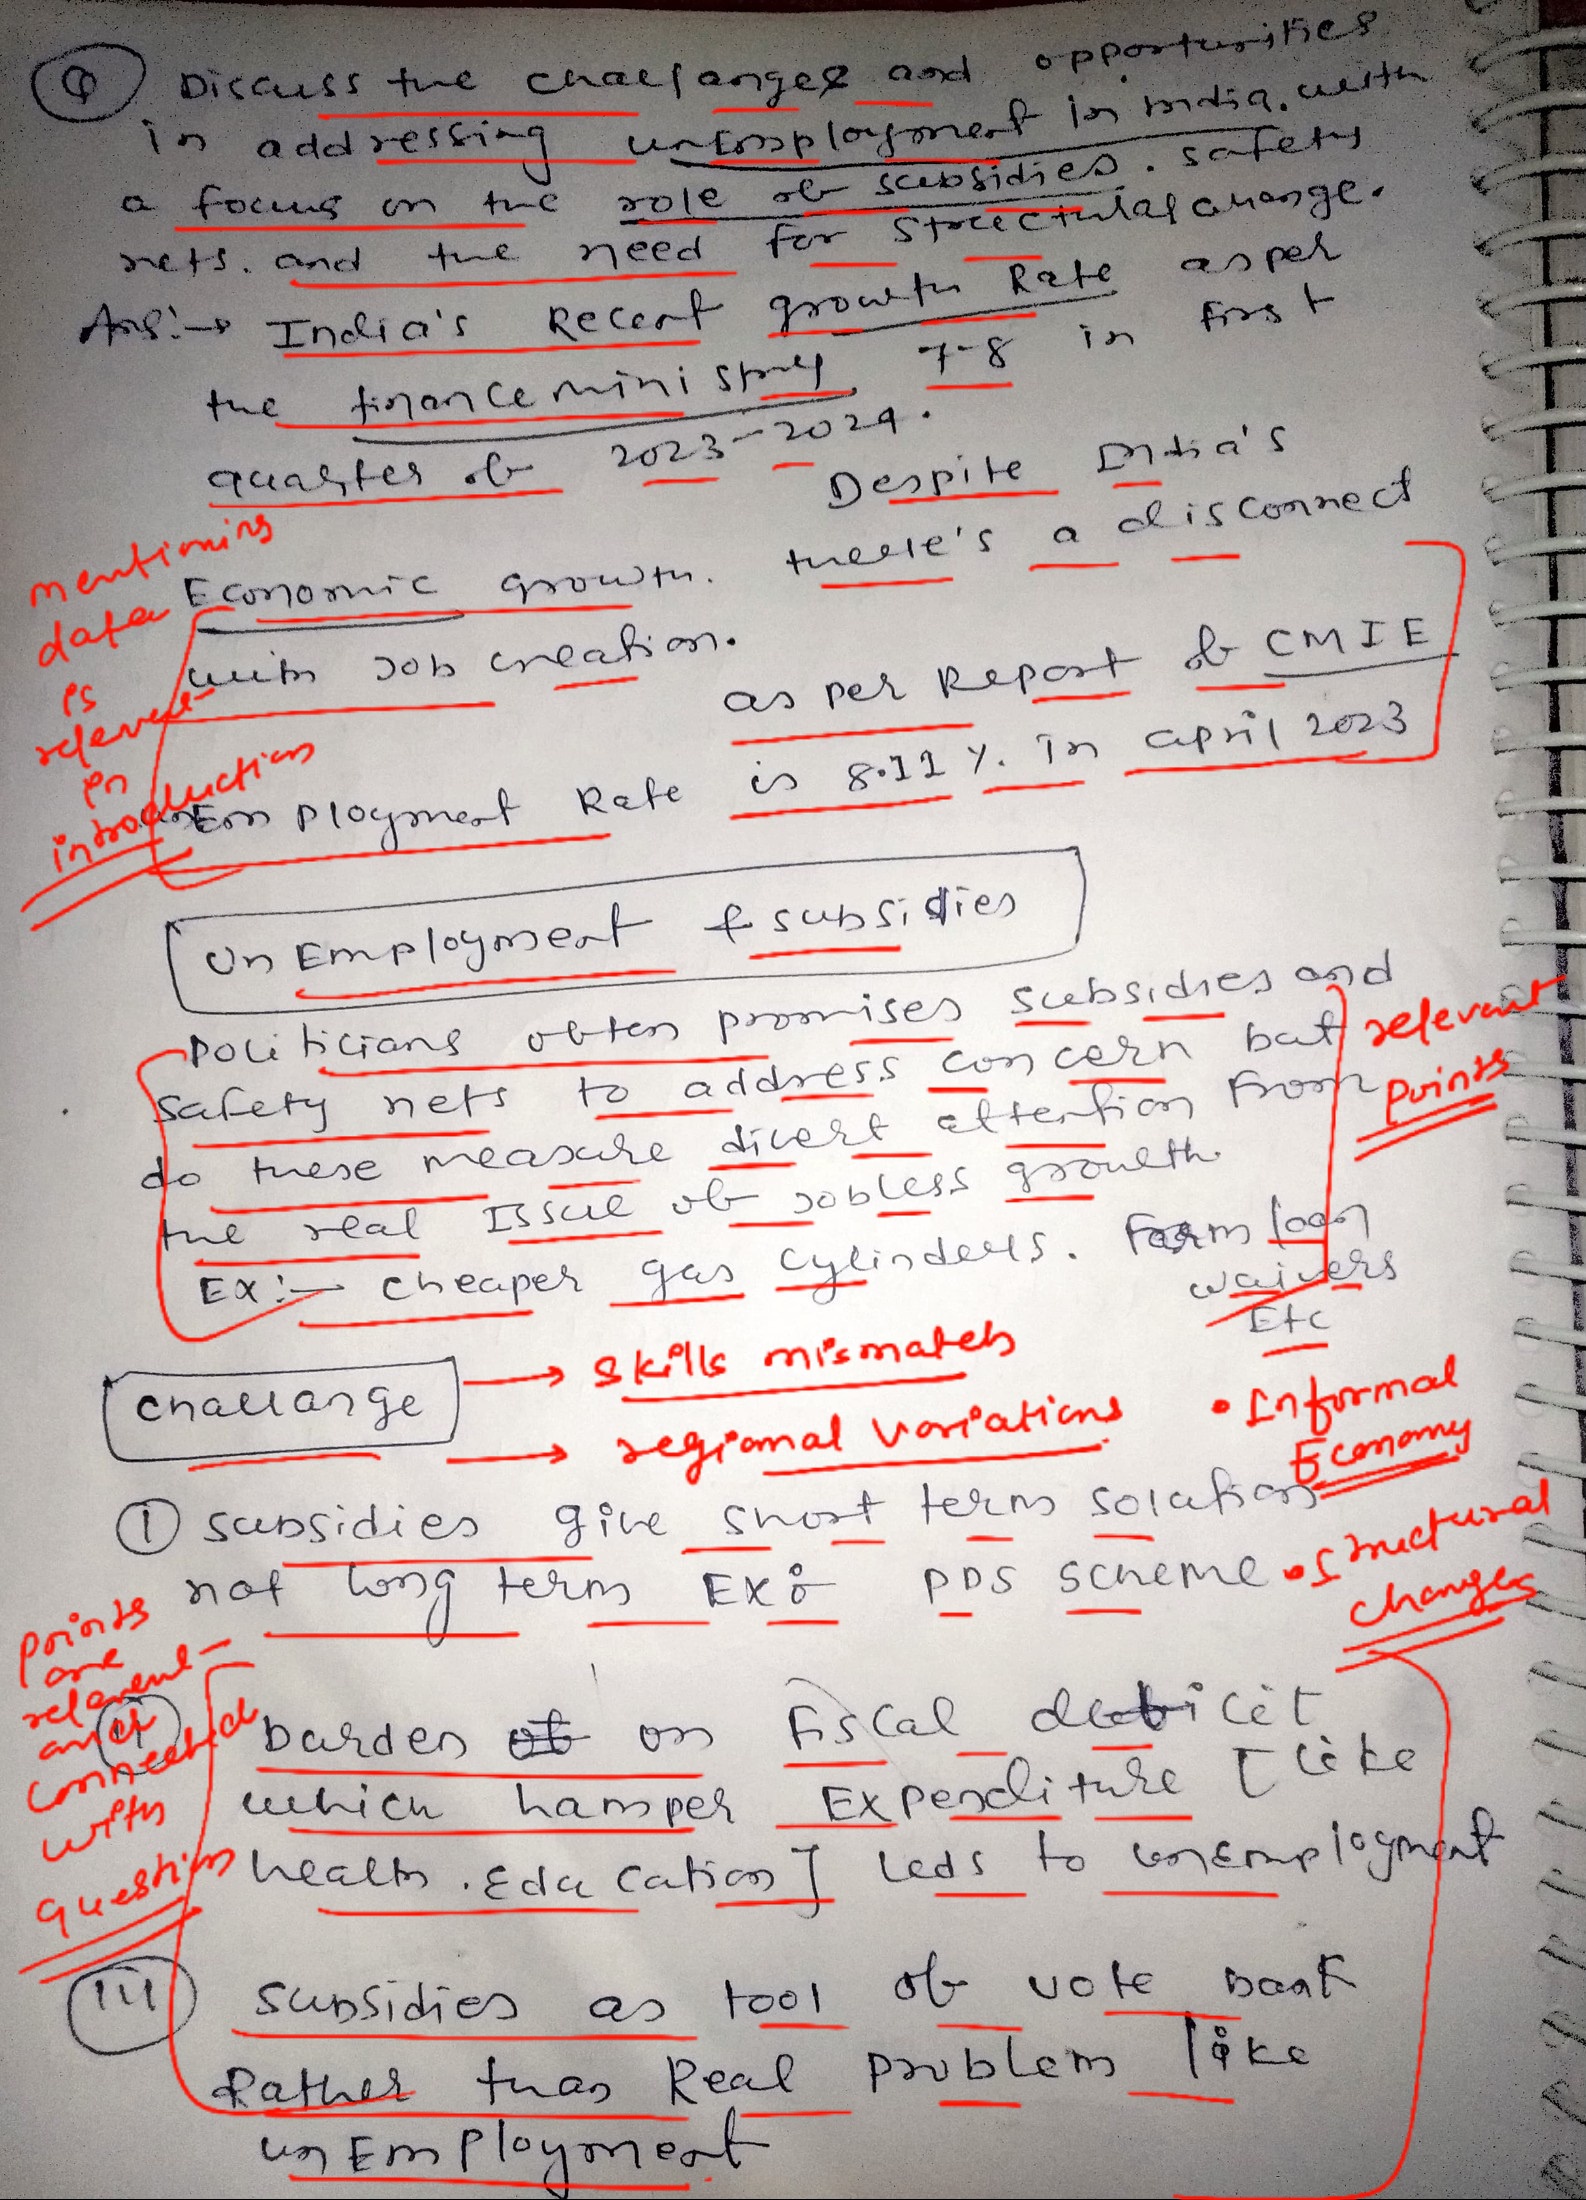 Q Discuss the challanges and opportunities
in addressing unemployment in India. with
a focus on the role of subsidies. safety
nets. and the need for structural change.
Ans:→ India's Recent growth Rate as per
the finance ministry 7-8 in first
quarter of 2023-2024.
Despite India's
Economic growth. there's a disconnect
with Job creation.
as per Report of CMIE
unEmployment Rate is 8.11 %. In april 2023
mentioning
data
is
relevant
in
introduction
UnEmployment & subsidies
Politicians often promises subsidies and
safety nets to address concern but
do these measure divert attention from
the real Issue of Jobless growth.
EX:- cheaper gas cylinders. Farm loan
waivers
Etc
relevant
points
Challange
→ skills mismatch
→ regional variations
• Informal
Economy
• structural
changes
① subsidies give short term solution
not long term Ex: PDS scheme
points
are
relevant
and
connected
with
question
(ii) burden on Fiscal deficit
which hamper Expenditure [like
health. Education] leds to unEmployment
(iii) subsidies as tool of vote bank
Rather than Real problem like
unEmployment